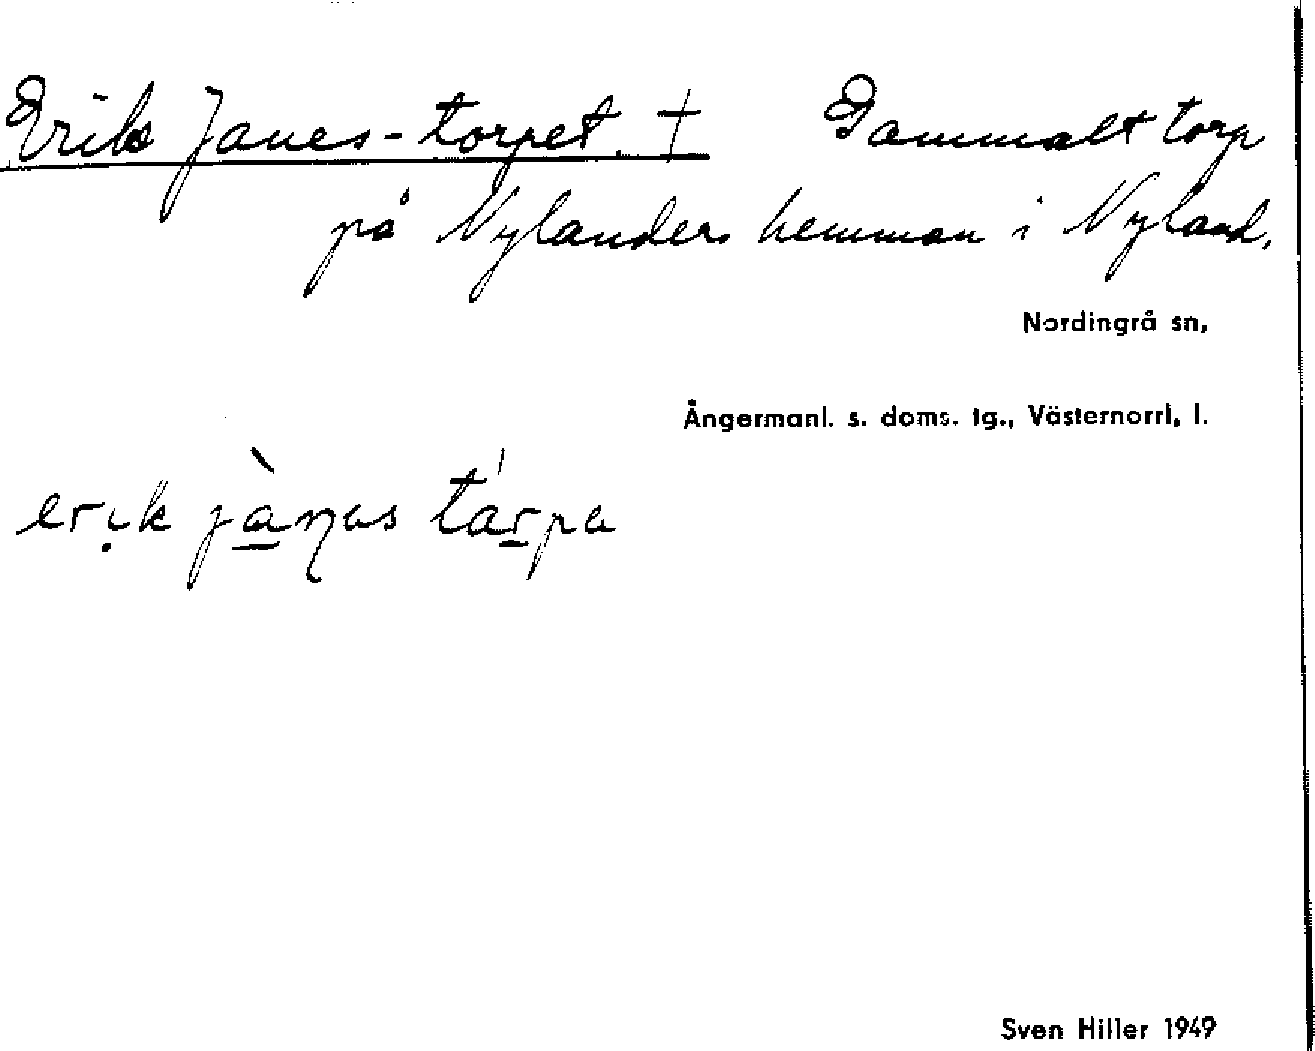 Erik Janes-torpet. † Gammalt torp
på Nylanders hemman i Nyland.
Nordingrå sn,
Ångermanl. s. doms. tg., Västernorrl. l.
erik jànas tárpa
Sven Hiller 1949